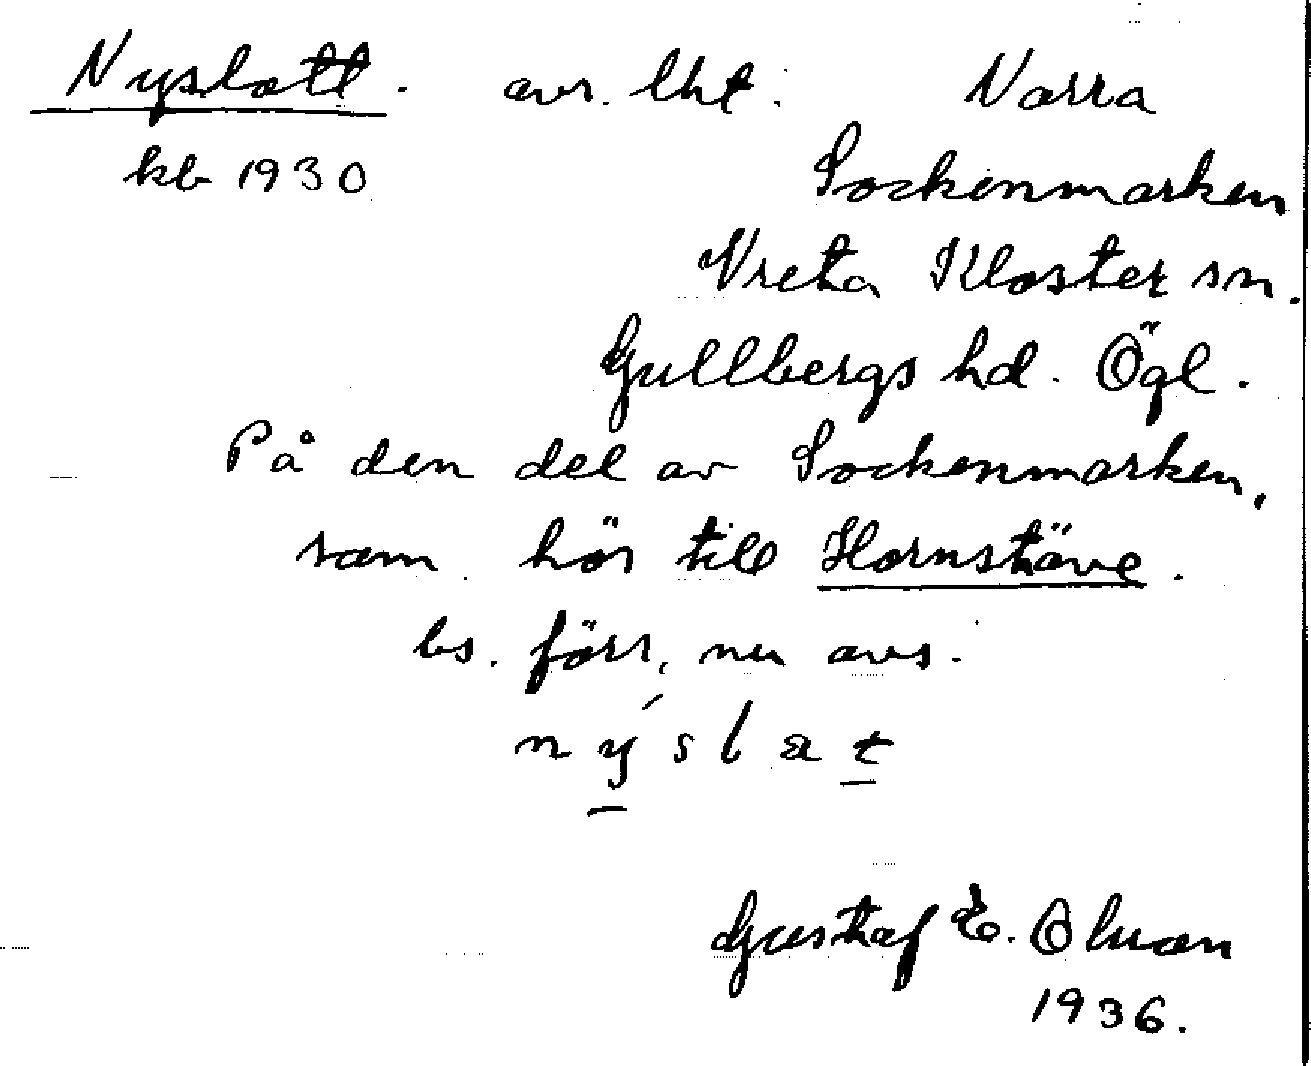 Nyslott. avs. lht. Norra
kb 1930 Sockenmarken
Vreta Kloster sn.
Gullbergs hd. Ögl.
På den del av Sockenmarken,
som hör till Hornstäve.
bs. förr, nu avs.
nýslat
Gustaf E. Olsson
1936.